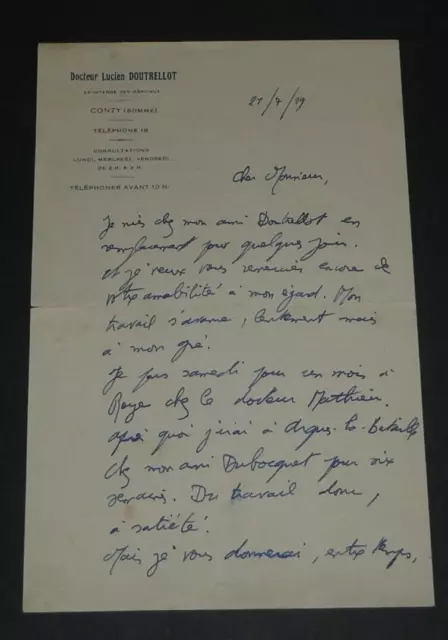 Docteur Lucien DOUTRELLOT
EX-INTERNE DES HÔPITAUX
CONTY (SOMME)
TÉLÉPHONE 18
CONSULTATIONS
LUNDI, MERCREDI, VENDREDI,
DE 2 H. A
TÉLÉPHONER AVANT 10 H.
21/7/39
Cher Monsieur,
Je suis chez mon ami Doutrellot en
remplacement pour quelques jours.
et je veux vous remercier encore de
votre amabilité à mon égard. Mon
travail s'avance, lentement mais
à mon gré.
Je pars samedi pour un mois à
Roye chez le docteur Mathieu.
après quoi j'irai à Arques-la-Bataille
chez mon ami Dubocquet pour six
semaines. Du travail donc,
à satiété.
Mais je vous donnerai, entre temps,